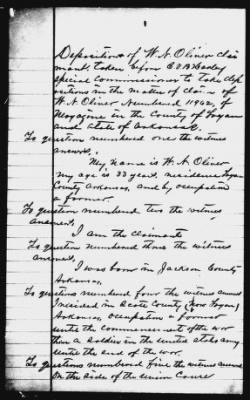 Deposition of W. A. Oliver clai
mant, taken before
special commissioner to take dep
ositions in the matter of claim of
W. A. Oliver Numbered 11962, of
Magazine in the County of Logan
and State of Arkansas.
To question numbered one the witness
answers,
My name is W. A. Oliver
my age is 33 years, residence Logan
County Arkansas, and by occupation
a farmer.
To question numbered two the witness
answers,
I am the claimant
To question numbered three the witness
answers,
I was born in Jackson County
Arkansas,
To questions numbered four the witness answers
I resided in Scott County (Now Logan)
Arkansas, occupation a Farmer
until the commencement of the war
then a Soldier in the united states army
until the end of the war.
To questions numbered five the witness answers
On the side of the union Cause